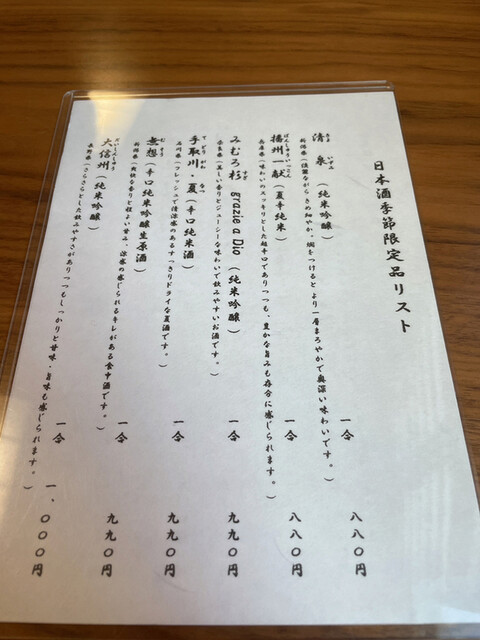 日本酒季節限定品リスト
清泉(純米吟醸) 一合 八八〇円
きよ いずみ
新潟県(淡麗ながらきめ細やか。燗をつけるとより一層まろやかで奥深い味わいです。)
播州一献(夏辛純米) 一合 八八〇円
ばんしゅういっこん
兵庫県(味わいのスッキリとした超辛口でありつつも、豊かな旨みも存分に感じられます。)
みむろ杉 grazie a Dio(純米吟醸) 一合 九九〇円
すぎ
奈良県(美しい香りとジューシーな味わいで飲みやすいお酒です。)
手取川・夏(辛口純米酒) 一合 九九〇円
て どり がわ なつ
石川県(フレッシュで清涼感のあるすっきりドライな夏酒です。)
無想(辛口純米吟醸生原酒) 一合 九九〇円
む そう
新潟県(爽快な香りと程よい甘み、涼感の感じられるキレがある食中酒です。)
大信州(純米吟醸) 一合 一、〇〇〇円
だいしんしゅう
長野県(さらさらとした飲みやすさがありつつもしっかりと甘味・旨味も感じられます。)